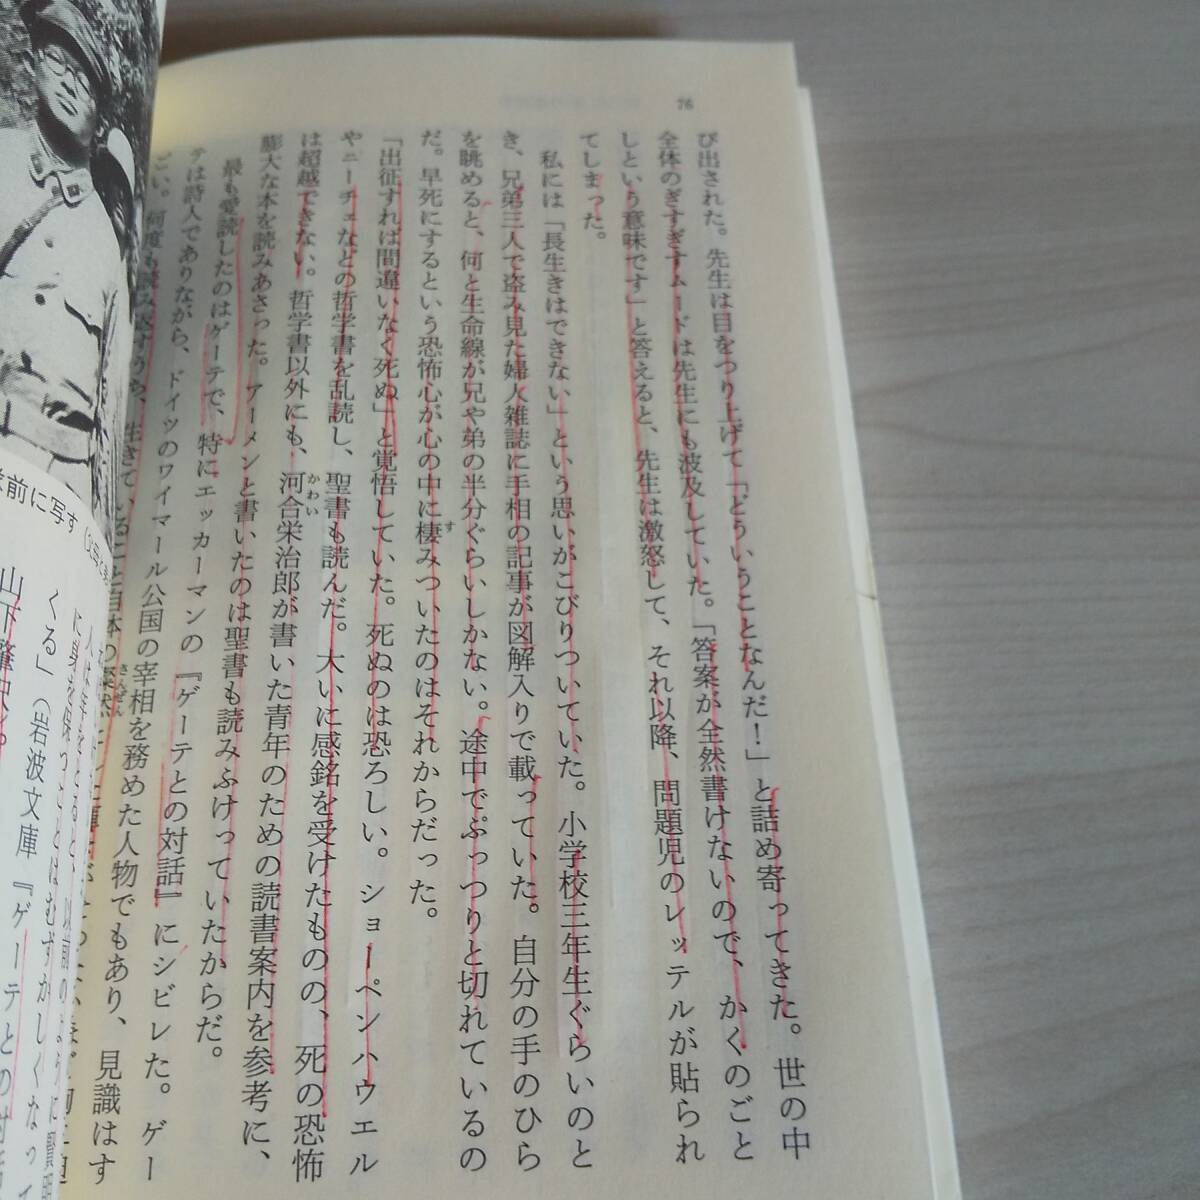 76
び出された。先生は目をつり上げて「どういうことなんだ！」と詰め寄ってきた。世の中
全体のぎすぎすムードは先生にも波及していた。「答案が全然書けないので、かくのごと
しという意味です」と答えると、先生は激怒して、それ以降、問題児のレッテルが貼られ
てしまった。
私には「長生きはできない」という思いがこびりついていた。小学校三年生ぐらいのと
き、兄弟三人で盗み見た婦人雑誌に手相の記事が図解入りで載っていた。自分の手のひら
を眺めると、何と生命線が兄や弟の半分ぐらいしかない。途中でぷっつりと切れているの
だ。早死にするという恐怖心が心の中に棲みついたのはそれからだった。
「出征すれば間違いなく死ぬ」と覚悟していた。死ぬのは恐ろしい。ショーペンハウエル
やニーチェなどの哲学書を乱読し、聖書も読んだ。大いに感銘を受けたものの、死の恐怖
は超越できない。哲学書以外にも、河合栄治郎が書いた青年のための読書案内を参考に、
膨大な本を読みあさった。アーメンと書いたのは聖書も読みふけっていたからだ。
最も愛読したのはゲーテで、特にエッカーマンの『ゲーテとの対話』にシビレた。ゲー
テは詩人でありながら、ドイツのワイマール公国の宰相を務めた人物でもあり、見識はす
ごい。何度も読み返すうち、生きて
前に写す
くる」（岩波文庫『ゲーテとの対
山下肇訳